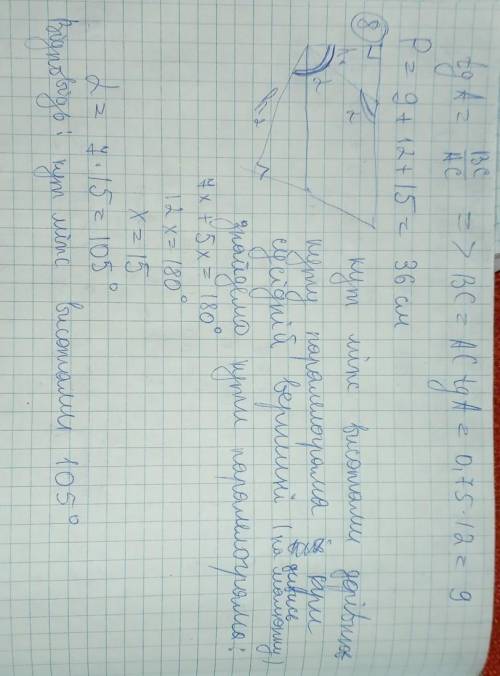 tg A = BC/AC => BC = AC tg A = 0,75·12 = 9
P = 9 + 12 + 15 = 36 см
8
h₁
α
α
h₂
кут між висотами дорівнює
куту паралелограма при
сусідній вершині (дивись на малюнку)
знайдемо кути паралелограма:
7x + 5x = 180°
12x = 180°
x = 15
α = 7·15 = 105°
Відповідь: кут між висотами 105°